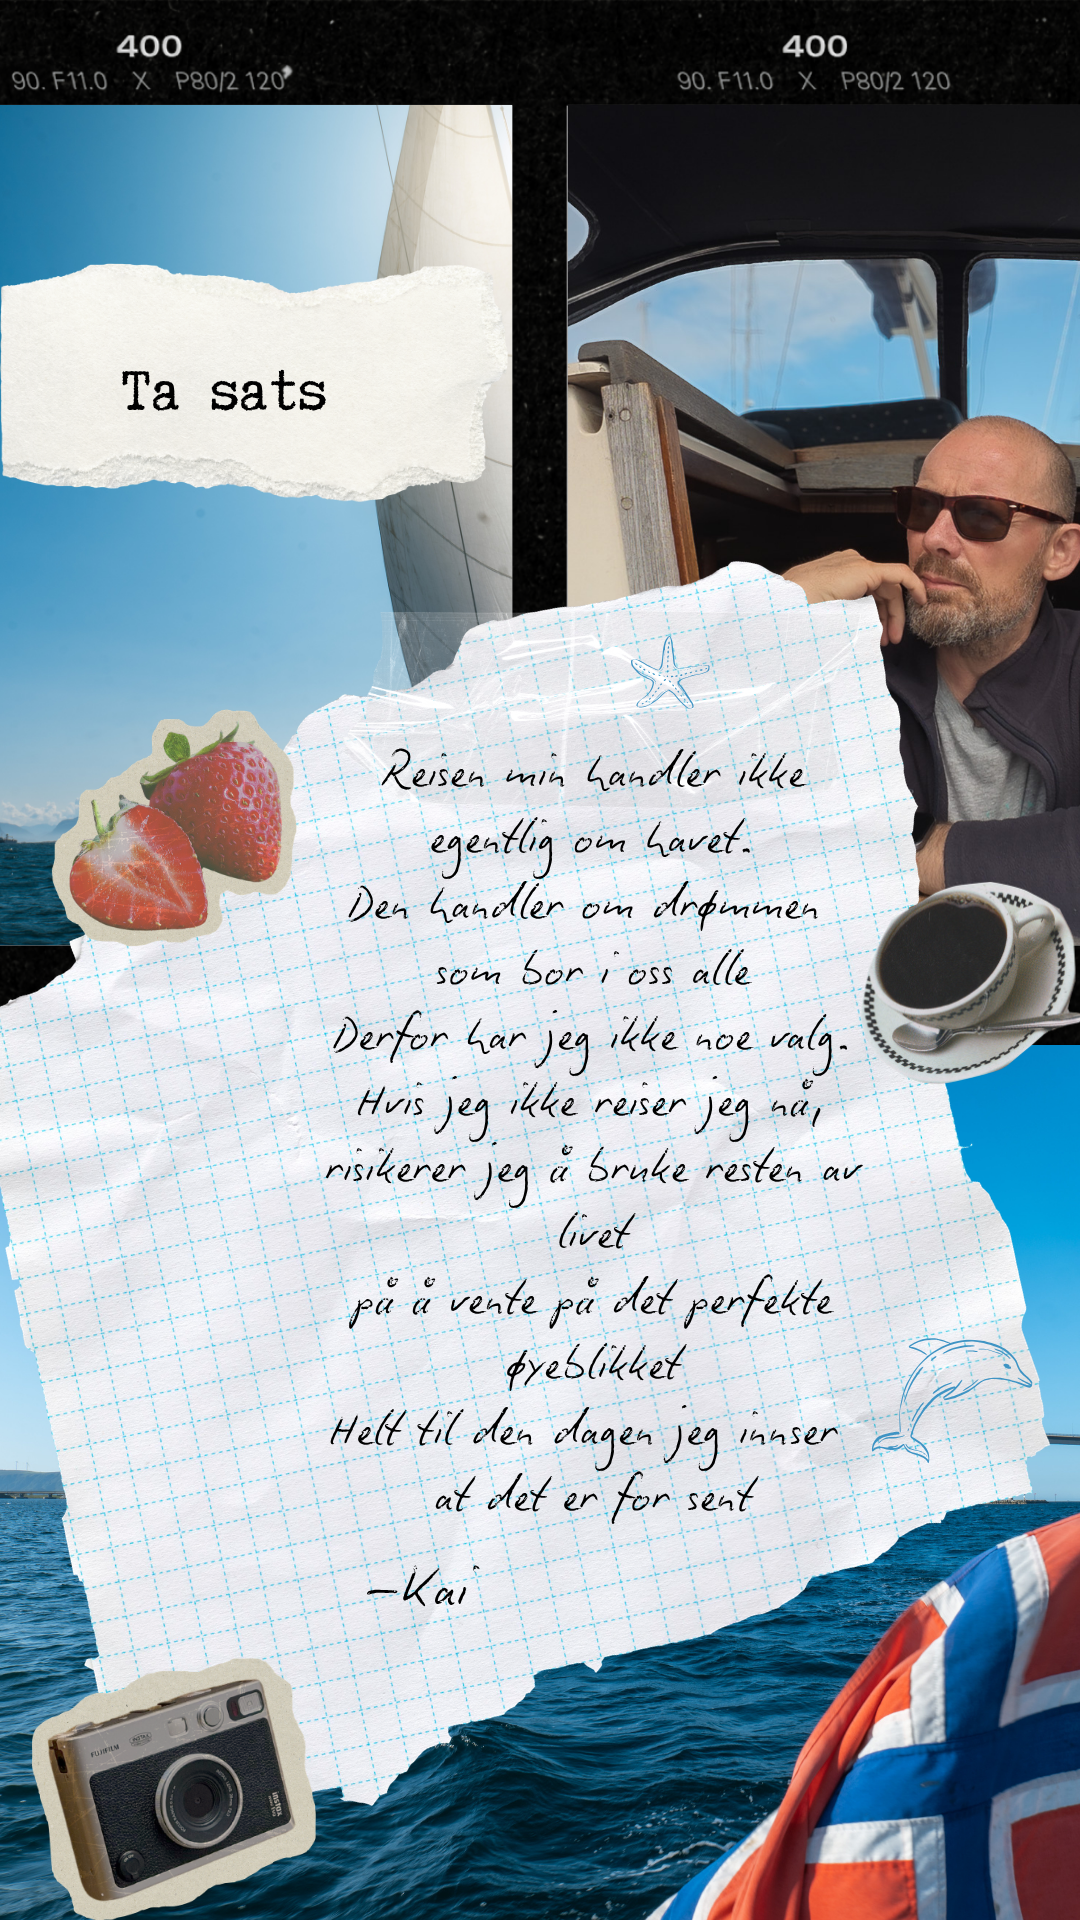 400
90. F11.0 X P80/2 120
400
90. F11.0 X P80/2 120
Ta sats
Reisen min handler ikke
egentlig om havet.
Den handler om drømmen
som bor i oss alle
Derfor har jeg ikke noe valg.
Hvis jeg ikke reiser jeg nå,
risikerer jeg å bruke resten av
livet
på å vente på det perfekte
øyeblikket
Helt til den dagen jeg innser
at det er for sent
—Kai
FUJIFILM
instax